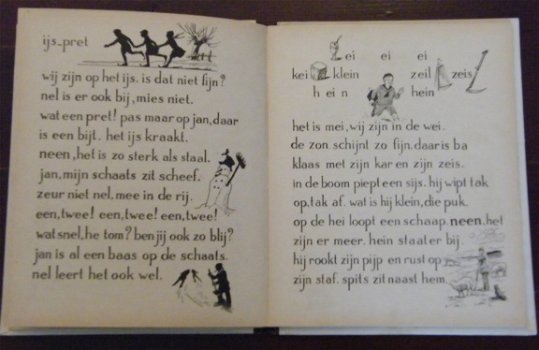 ijs-pret
wij zijn op het ijs. is dat niet fijn?
nel is er ook bij, mies niet.
wat een pret! pas maar op jan, daar
is een bijt. het ijs kraakt.
neen, het is zo sterk als staal.
jan, mijn schaats zit scheef.
zeur niet nel, mee in de rij.
een, twee! een, twee! een, twee!
wat snel, he tom? ben jij ook zo blij?
jan is al een baas op de schaats.
nel leert het ook wel.
ei ei ei ei
kei klein zeil zeis
hein hein
het is mei, wij zijn in de wei.
de zon schijnt zo fijn. daar is ba
klaas met zijn kar en zijn zeis.
in de boom piept een sijs. hij wipt tak
op, tak af. wat is hij klein, die puk.
op de hei loopt een schaap. neen, het
zijn er meer. hein staat er bij.
hij rookt zijn pijp en rust op
zijn staf. spits zit naast hem.